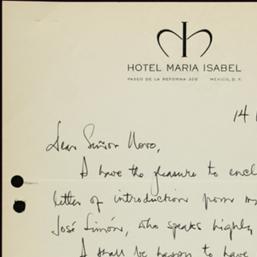 HOTEL MARIA ISABEL
PASEO DE LA REFORMA 325 MEXICO, D. F.
14
Dear Señor Novo,
I have the pleasure to encl
letter of introduction from my
José Simón, who speaks highly
I shall be happy to have